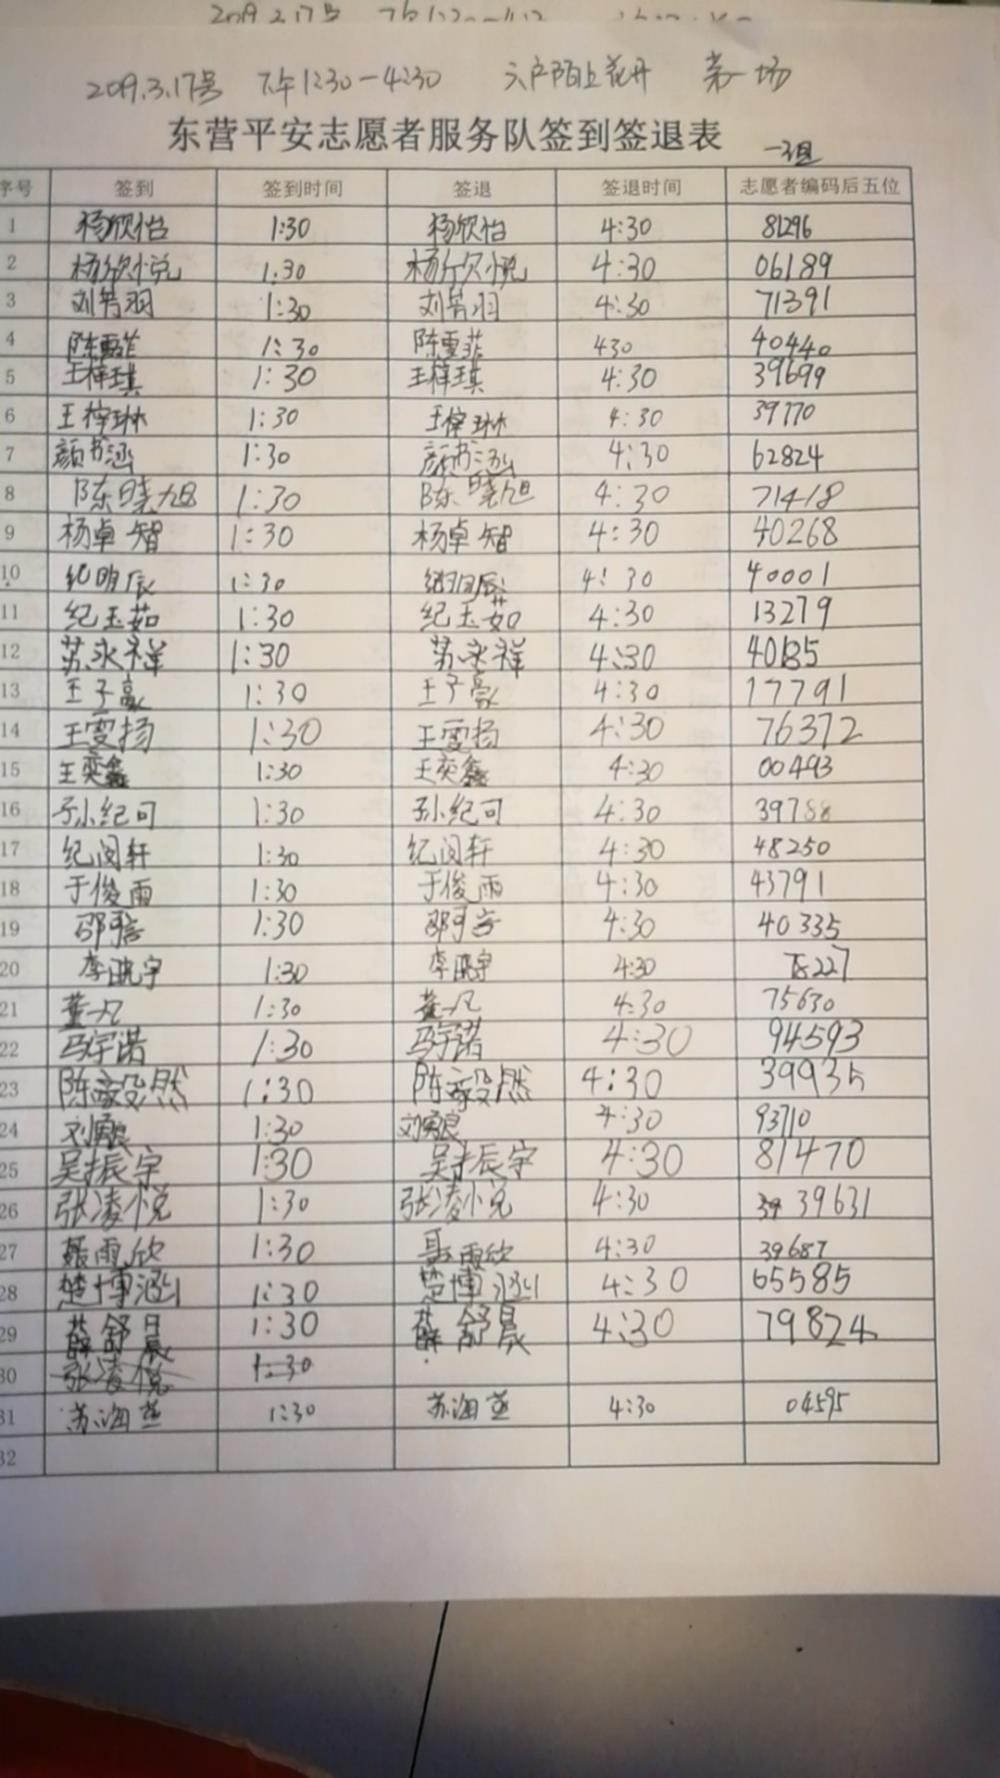 2019.3.17号 下午1:30-4:30 六户陌上花开 第一场
东营平安志愿者服务队签到签退表 一组
序号 签到 签到时间 签退 签退时间 志愿者编码后五位
1 杨欣怡 1:30 杨欣怡 4:30 81296
2 杨欣悦 1:30 杨欣悦 4:30 06189
3 刘芮羽 1:30 刘芮羽 4:30 71391
4 陈雯菲 1:30 陈雯菲 430 40440
5 王梓琪 1:30 王梓琪 4:30 39699
6 王梓琳 1:30 王梓琳 4:30 39770
7 颜书涵 1:30 颜书涵 4:30 62824
8 陈晓旭 1:30 陈晓旭 4:30 71418
9 杨卓智 1:30 杨卓智 4:30 40268
10 纪明辰 1:30 纪明辰 4:30 40001
11 纪玉茹 1:30 纪玉茹 4:30 13279
12 苏永祥 1:30 苏永祥 4:30 40135
13 王子豪 1:30 王子豪 4:30 17791
14 王雯扬 1:30 王雯扬 4:30 76372
15 王奕鑫 1:30 王奕鑫 4:30 00493
16 孙纪可 1:30 孙纪可 4:30 39788
17 纪闵轩 1:30 纪闵轩 4:30 48250
18 于俊雨 1:30 于俊雨 4:30 43791
19 邵可 1:30 邵可 4:30 40335
20 李晓宇 1:30 李晓宇 4:30 227
21 董一凡 1:30 董一凡 4:30 75630
22 马宇诺 1:30 马宇诺 4:30 94593
23 陈毅然 1:30 陈毅然 4:30 39935
24 刘 1:30 刘 4:30 93710
25 吴振宇 1:30 吴振宇 4:30 81470
26 张凌悦 1:30 张凌悦 4:30 39 39631
27 聂雨欣 1:30 聂雨欣 4:30 39687
28 楚博涵 1:30 楚博涵 4:30 65585
29 薛舒晨 1:30 薛舒晨 4:30 79824
30 张凌悦 1:30
31 苏海燕 1:30 苏海燕 4:30 04595
32